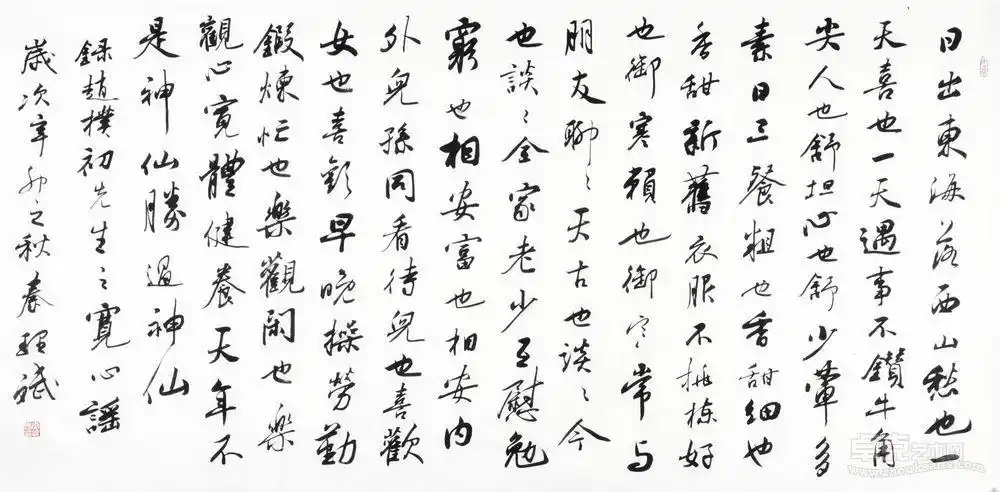 日出東海落西山愁也一
天喜也一天遇事不鑽牛角
尖人也舒坦心也舒少葷多
素日三餐粗也香甜細也
香甜新舊衣服不挑揀好
也御寒賴也御寒常与
朋友聊〻天古也談〻今
也談〻全家老少互慰勉
窮也相安富也相安内
外兒孫同看待兒也喜歡
女也喜歡早晚操勞勤
鍛煉忙也樂觀閑也樂
觀心寬體健養天年不
是神仙勝過神仙
録趙樸初先生之寬心謡
歲次辛卯之秋
卓克艺术网